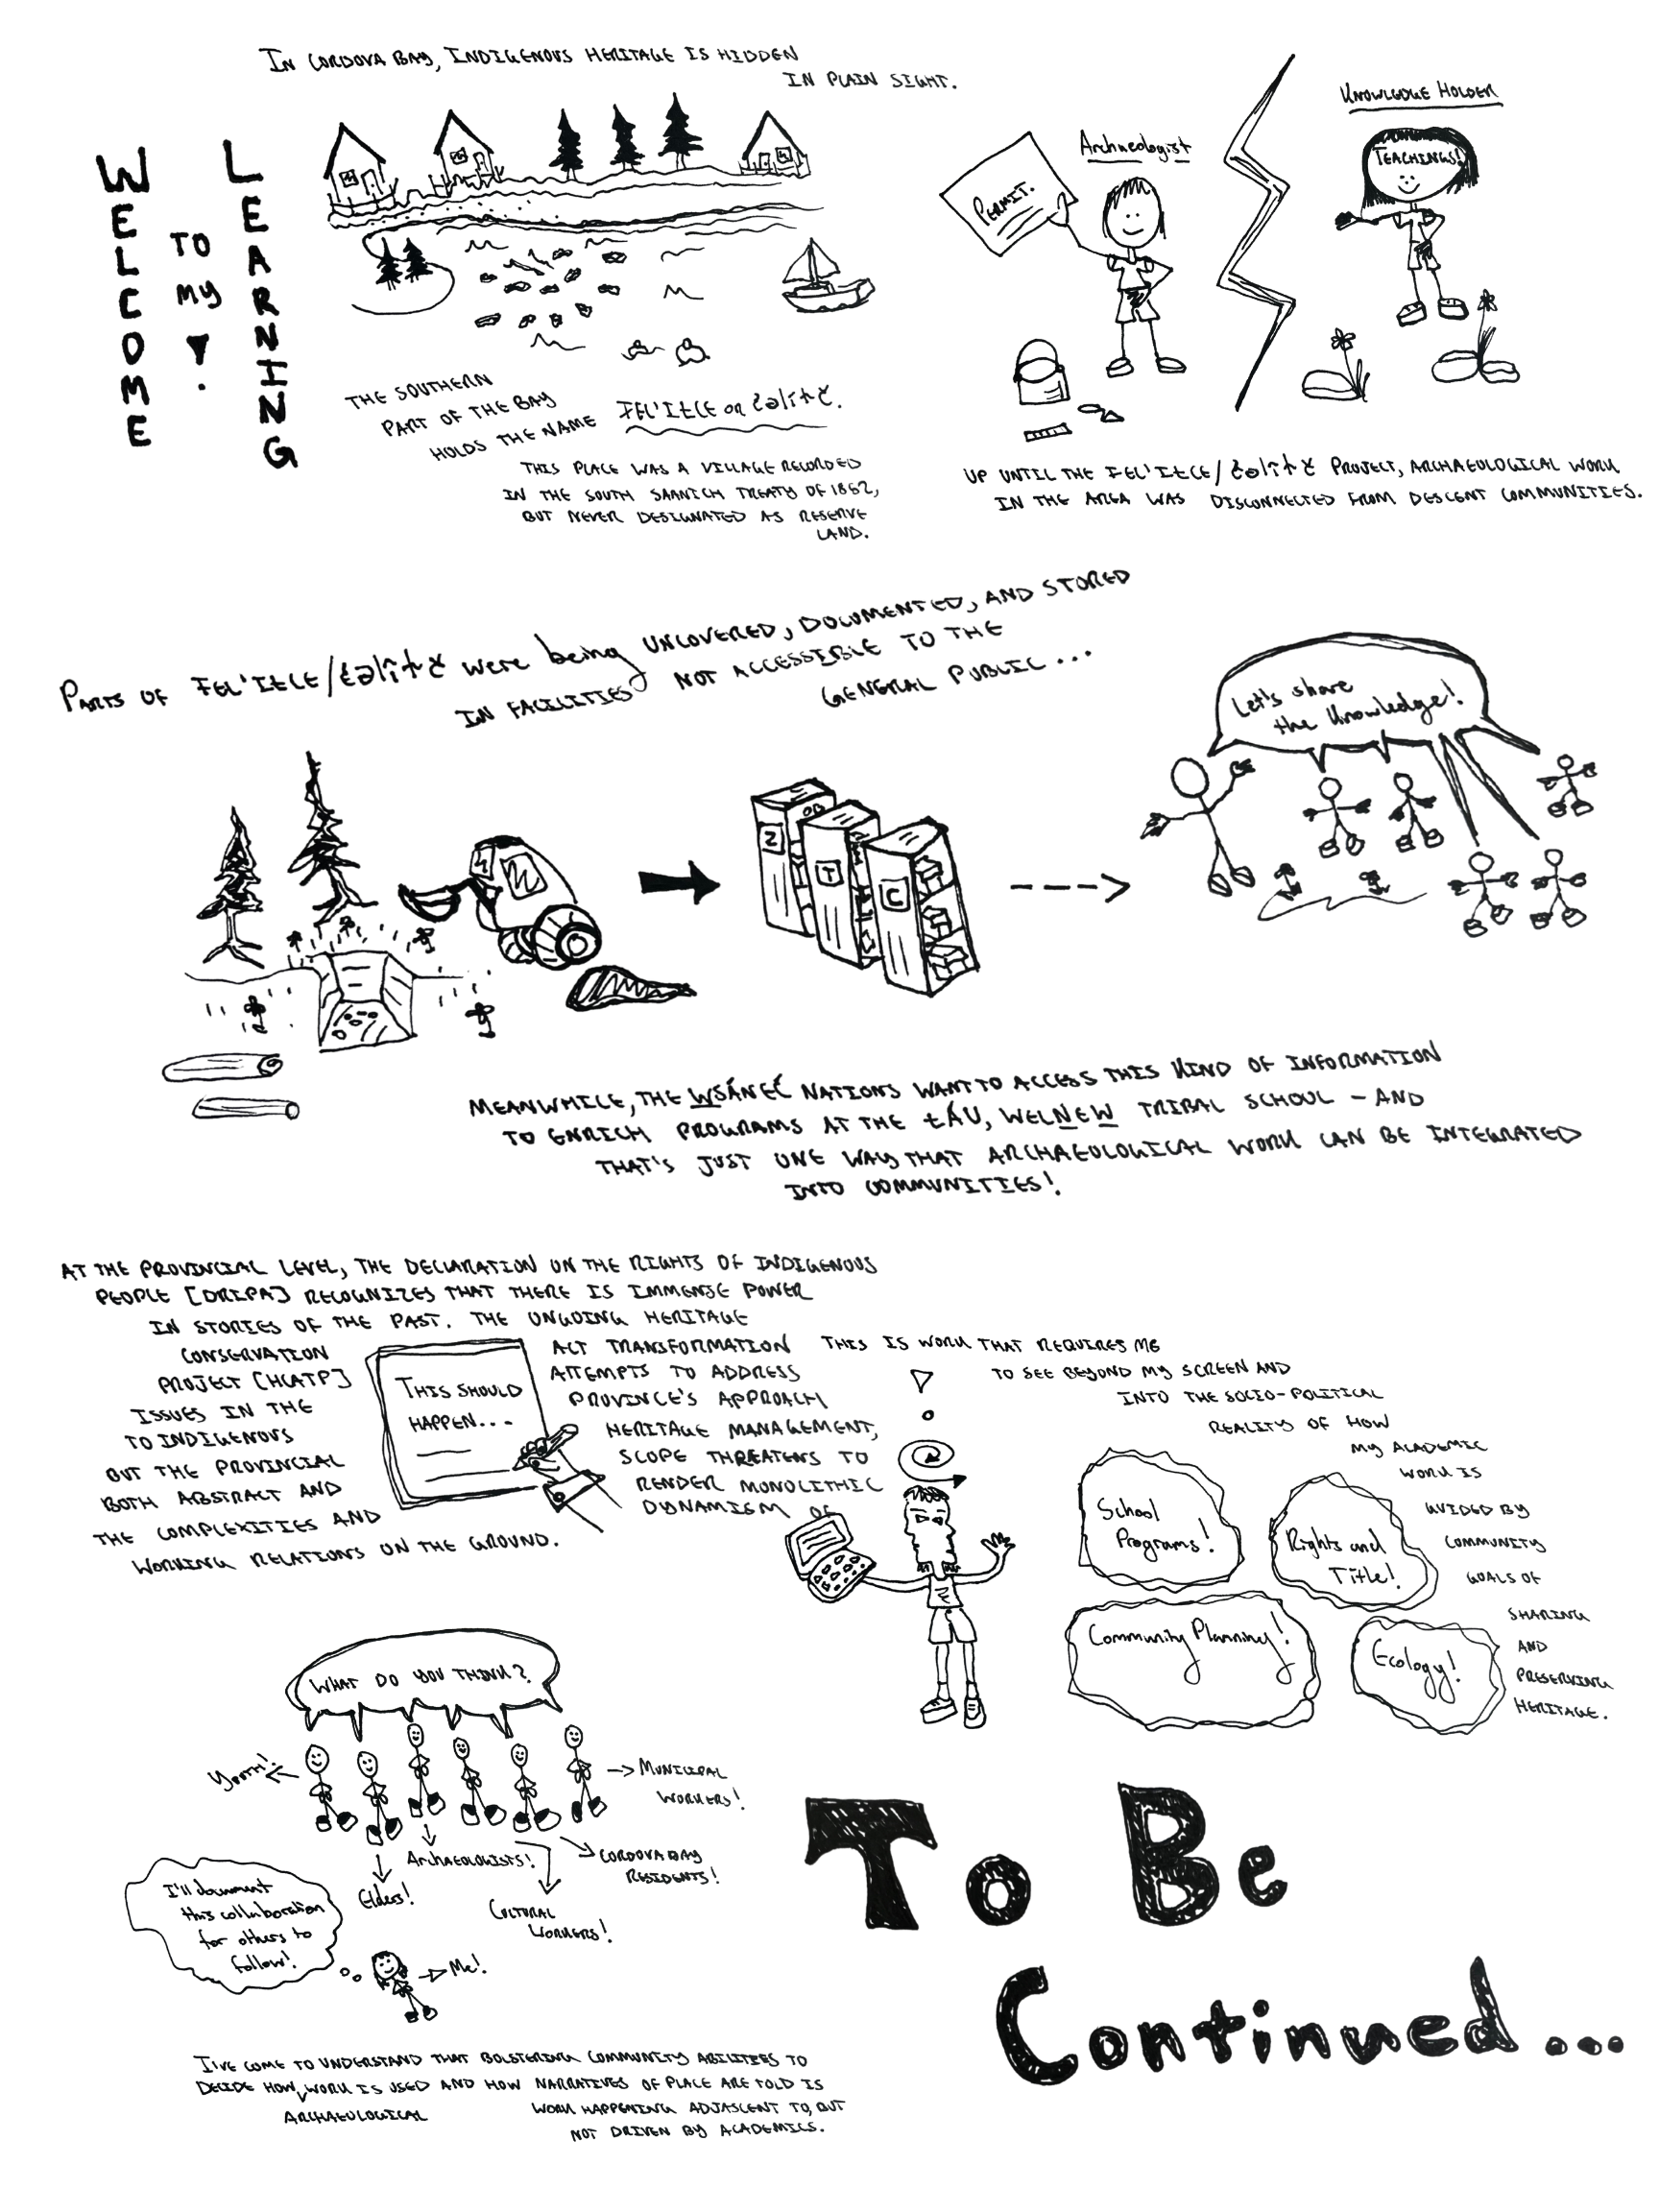 WELCOME
TO
MY
LEARNING
!
IN CORDOVA BAY, INDIGENOUS HERITAGE IS HIDDEN
IN PLAIN SIGHT.
THE SOUTHERN
PART OF THE BAY
HOLDS THE NAME ȾEL¸IȽĆE or c̓əl̕íɫč.
THIS PLACE WAS A VILLAGE RECORDED
IN THE SOUTH SAANICH TREATY OF 1852,
BUT NEVER DESIGNATED AS RESERVE
LAND.
Archaeologist
PERMIT.
KNOWLEDGE HOLDER
TEACHINGS!
UP UNTIL THE ȾEL¸IȽĆE/c̓əl̕íɫč PROJECT, ARCHAEOLOGICAL WORK
IN THE AREA WAS DISCONNECTED FROM DESCENT COMMUNITIES.
PARTS OF ȾEL¸IȽĆE/c̓əl̕íɫč were being UNCOVERED, DOCUMENTED, AND STORED
IN FACILITIES NOT ACCESSIBLE TO THE
GENERAL PUBLIC...
Let's share
the knowledge!
Z
T
C
MEANWHILE, THE W̱SÁNEĆ NATIONS WANT TO ACCESS THIS KIND OF INFORMATION
TO ENRICH PROGRAMS AT THE ȽÁU, WELṈEW̱ TRIBAL SCHOOL – AND
THAT'S JUST ONE WAY THAT ARCHAEOLOGICAL WORK CAN BE INTEGRATED
INTO COMMUNITIES!
AT THE PROVINCIAL LEVEL, THE DECLARATION ON THE RIGHTS OF INDIGENOUS
PEOPLE [DRIPA] RECOGNIZES THAT THERE IS IMMENSE POWER
IN STORIES OF THE PAST. THE ONGOING HERITAGE
CONSERVATION ACT TRANSFORMATION
PROJECT [HCATP] ATTEMPTS TO ADDRESS
ISSUES IN THE PROVINCE'S APPROACH
TO INDIGENOUS HERITAGE MANAGEMENT,
BUT THE PROVINCIAL SCOPE THREATENS TO
BOTH ABSTRACT AND RENDER MONOLITHIC
THE COMPLEXITIES AND DYNAMISM OF
WORKING RELATIONS ON THE GROUND.
THIS SHOULD
HAPPEN...
THIS IS WORK THAT REQUIRES ME
TO SEE BEYOND MY SCREEN AND
INTO THE SOCIO-POLITICAL
REALITY OF HOW
MY ACADEMIC
WORK IS
GUIDED BY
COMMUNITY
GOALS OF
SHARING
AND
PRESERVING
HERITAGE.
School
Programs!
Rights and
Title!
Community Planning!
Ecology!
WHAT DO YOU THINK?
Youth!
Elders!
ARCHAEOLOGISTS!
CULTURAL
WORKERS!
CORDOVA BAY
RESIDENTS!
MUNICIPAL
WORKERS!
I'll document
this collaboration
for others to
follow!
Me!
I'VE COME TO UNDERSTAND THAT BOLSTERING COMMUNITY ABILITIES TO
DECIDE HOW ARCHAEOLOGICAL WORK IS USED AND HOW NARRATIVES OF PLACE ARE TOLD IS
WORK HAPPENING ADJASCENT TO, BUT
NOT DRIVEN BY ACADEMICS.
To Be
Continued...